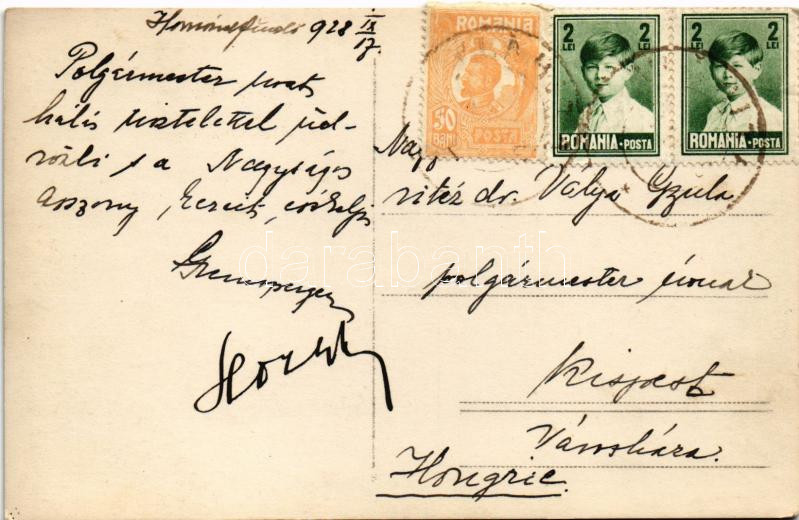 Homoródfürdő 928 IX/17.
Polgármester urat
hálás tisztelettel üd-
vözli s a Nagyságos
Asszony kezeit csókolja
ROMANIA
50
BANI
POSTA
2
LEI
2
LEI
ROMANIA·POSTA
2
LEI
2
LEI
ROMANIA·POSTA
Nagys.
vitéz dr. Válya Gyula
polgármester úrnak
Kispest
Városháza.
Hongrie.
darabanth